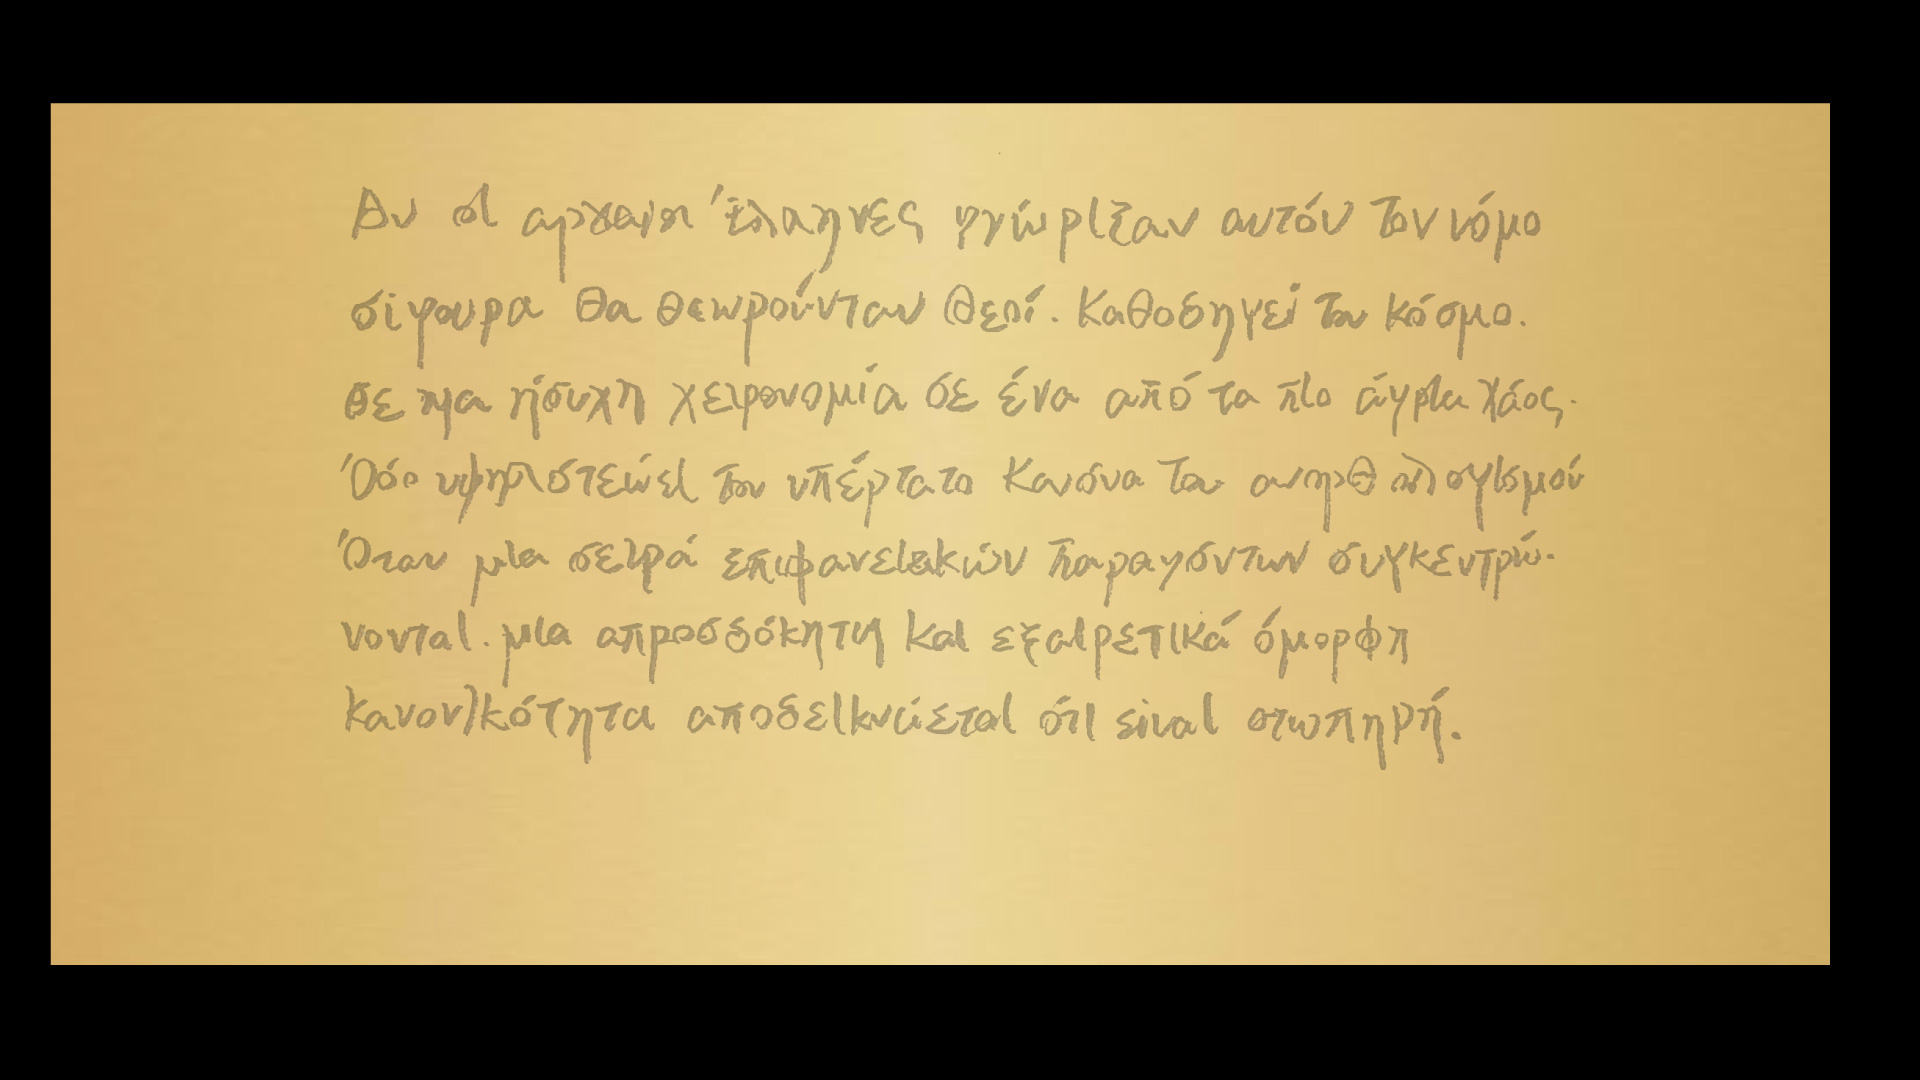 Αν οι αρχαίοι Έλληνες γνώριζαν αυτόν τον νόμο
σίγουρα θα θεωρούνταν θεοί. Καθοδηγεί τον κόσμο.
σε μια ήσυχη χειρονομία σε ένα από τα πιο άγρια χάος.
Όσο υψηλοστεύει τον υπέρτατο Κανόνα του
Όταν μια σειρά επιφανειακών παραγόντων συγκεντρώ-
νονται. μια απροσδόκητη και εξαιρετικά όμορφη
κανονικότητα αποδεικνύεται ότι είναι σιωπηρή.